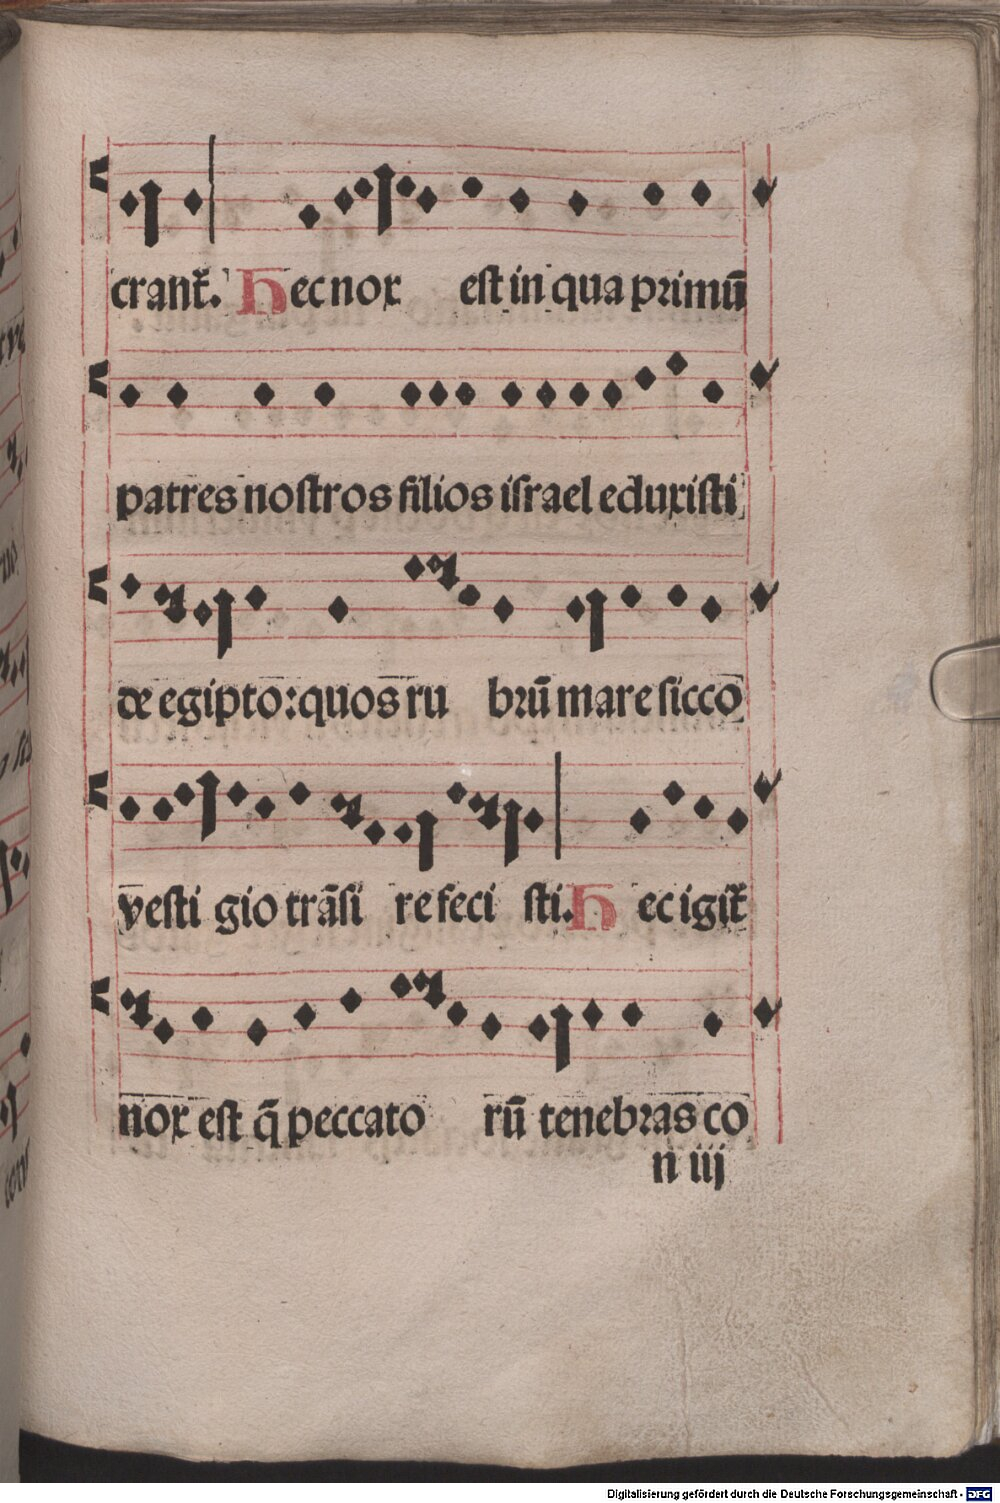 crant᷑. Hec nox est in qua primū
patres nostros filios israel eduxisti
de egipto: quos ru brū mare sicco
vesti gio trāsi re feci sti. Hec igit᷑
nox est q̄ peccato rū tenebras co
n iij
Digitalisierung gefördert durch die Deutsche Forschungsgemeinschaft - DFG